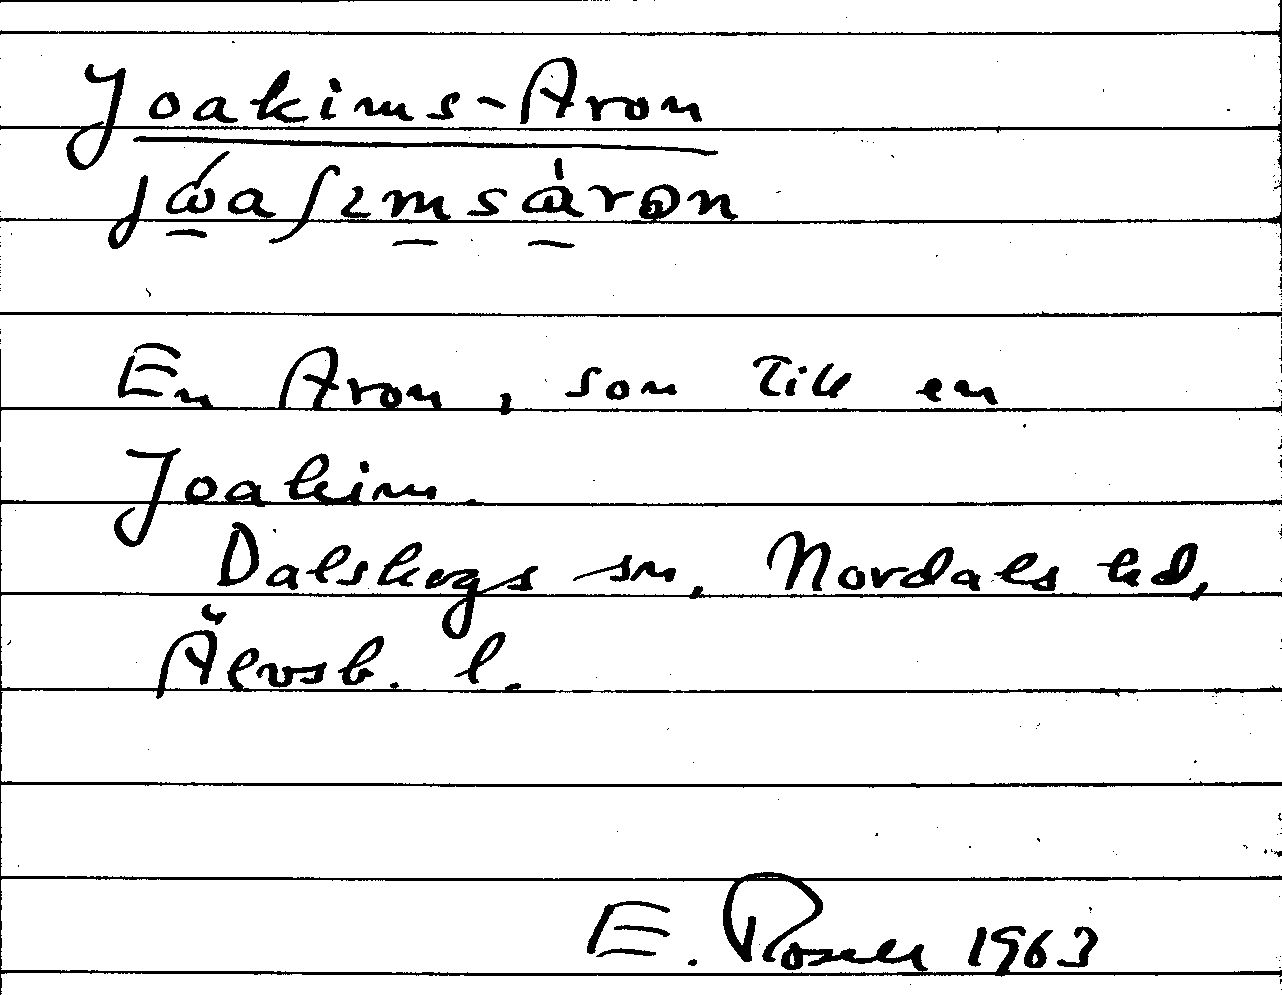 Joakims-Aron
En Aron, son till en
Joakim.
Dalskogs sn, Nordals hd,
Älvsb. l.
E. Rosell 1963